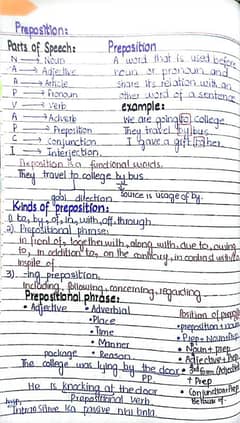 Preposition:
Parts of Speech:
N → Noun
A → Adjective
A → Article
P → Pronoun
V → Verb
A → Adverb
P → Preposition
C → Conjunction
I → Interjection.
Preposition
A word that is used before
noun or pronoun and
share its relation with an
other word of a sentence
example:
We are going to college
They travel by bus.
I gave a gift to her.
Preposition is a functional words.
They travel to college by bus.
goal direction source is usage of by.
Kinds of preposition:
1) to, by, of, in, with, off, through.
2) Prepositional phrase:
in front of, together with, along with, due to, owing
to, in addition to, on the contrary, in contrast with,
inspite of
3) -ing preposition.
including, following, concerning, regarding
Prepositional phrase:
• Adjective • Adverbial
• Place
• Time
• Manner
• Reason.
Position of
• preposition + noun
• Prep + Noun
• Noun + prep
• Adjective + Prep
+ Prep
• Conjunction
Because of
package
The college was lying by the door
PP.
He is knocking at the door
Prepositional verb.
Intransitive ka passive nhi bnta